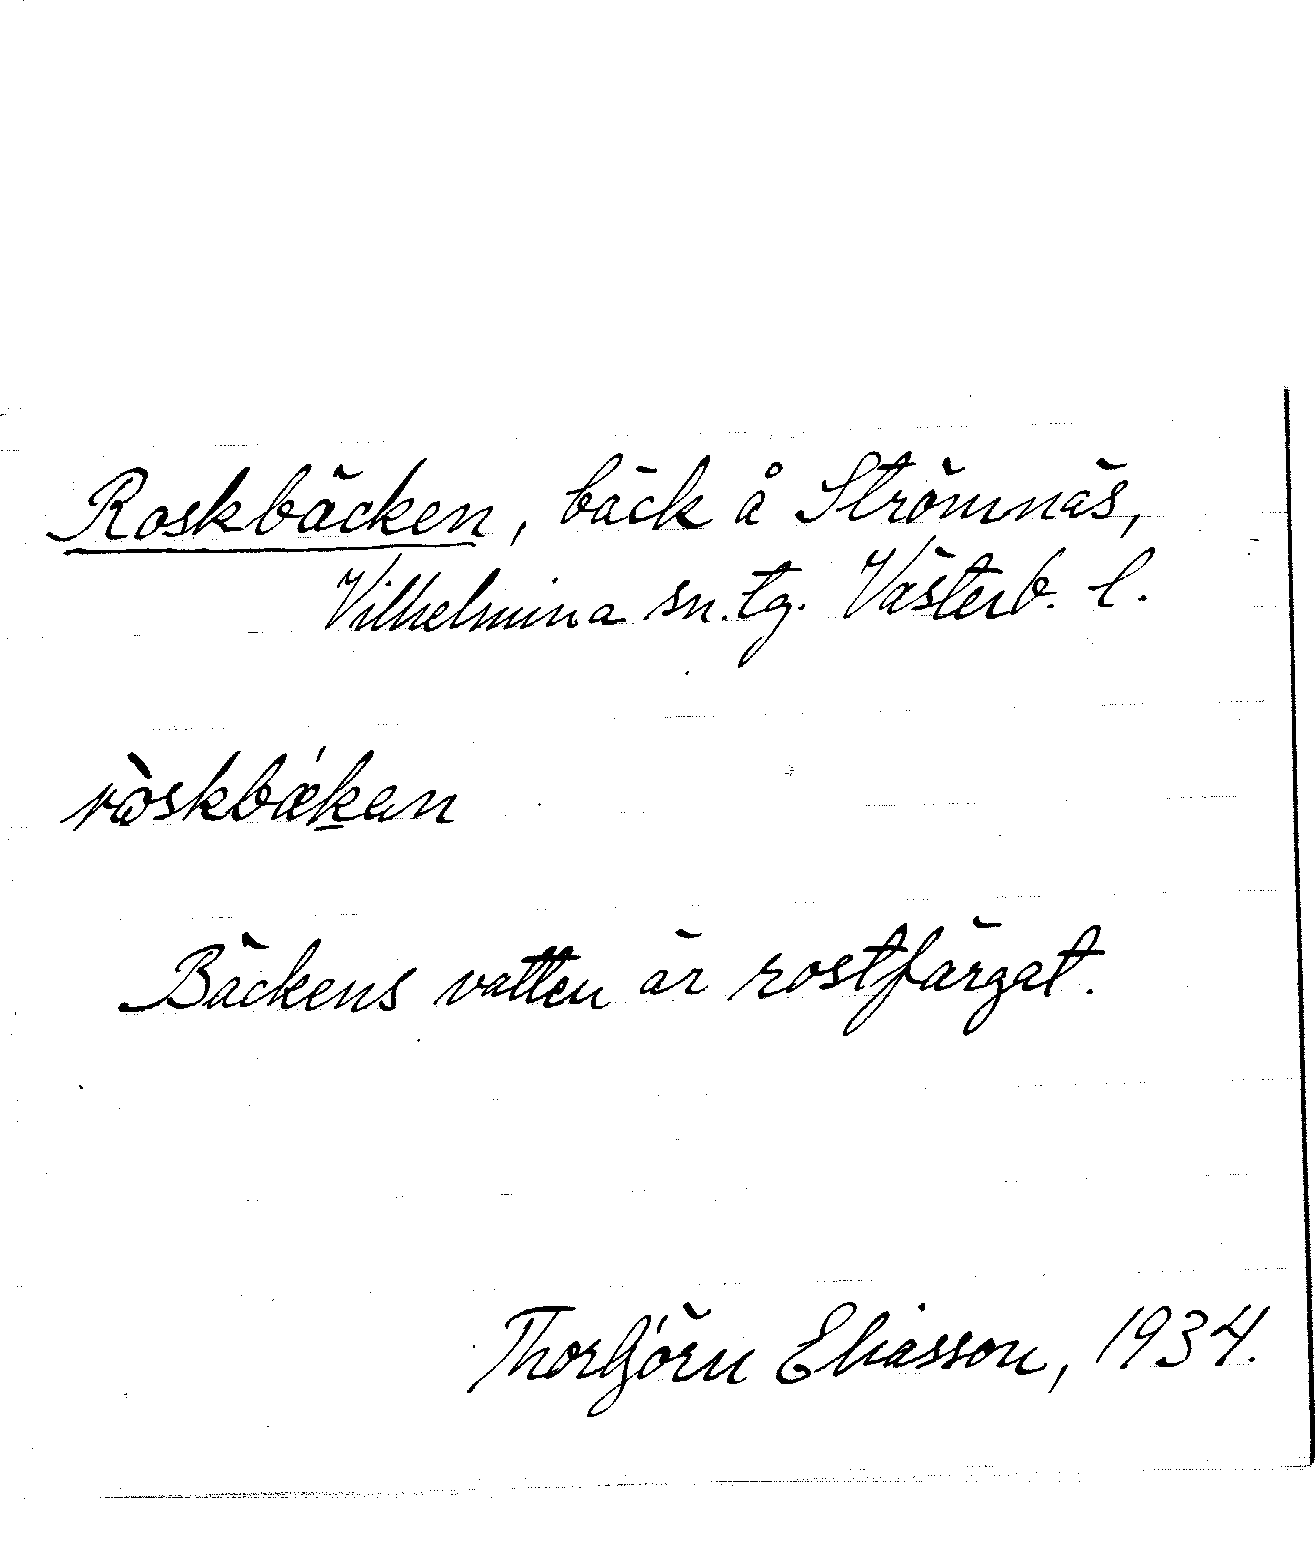 Roskbäcken, bäck å Strömnäs,
Vilhelmina sn. tg. Västerb. l.
ròskbǽkan
Bäckens vatten är rostfärgat.
Thorbjörn Eliasson, 1934.